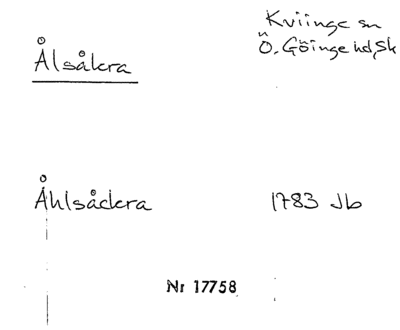 Kviinge sn
Ålsåkra
Ö. Göinge hd, Sk
Åhlsåckra 1783 Jb
Nr 17758